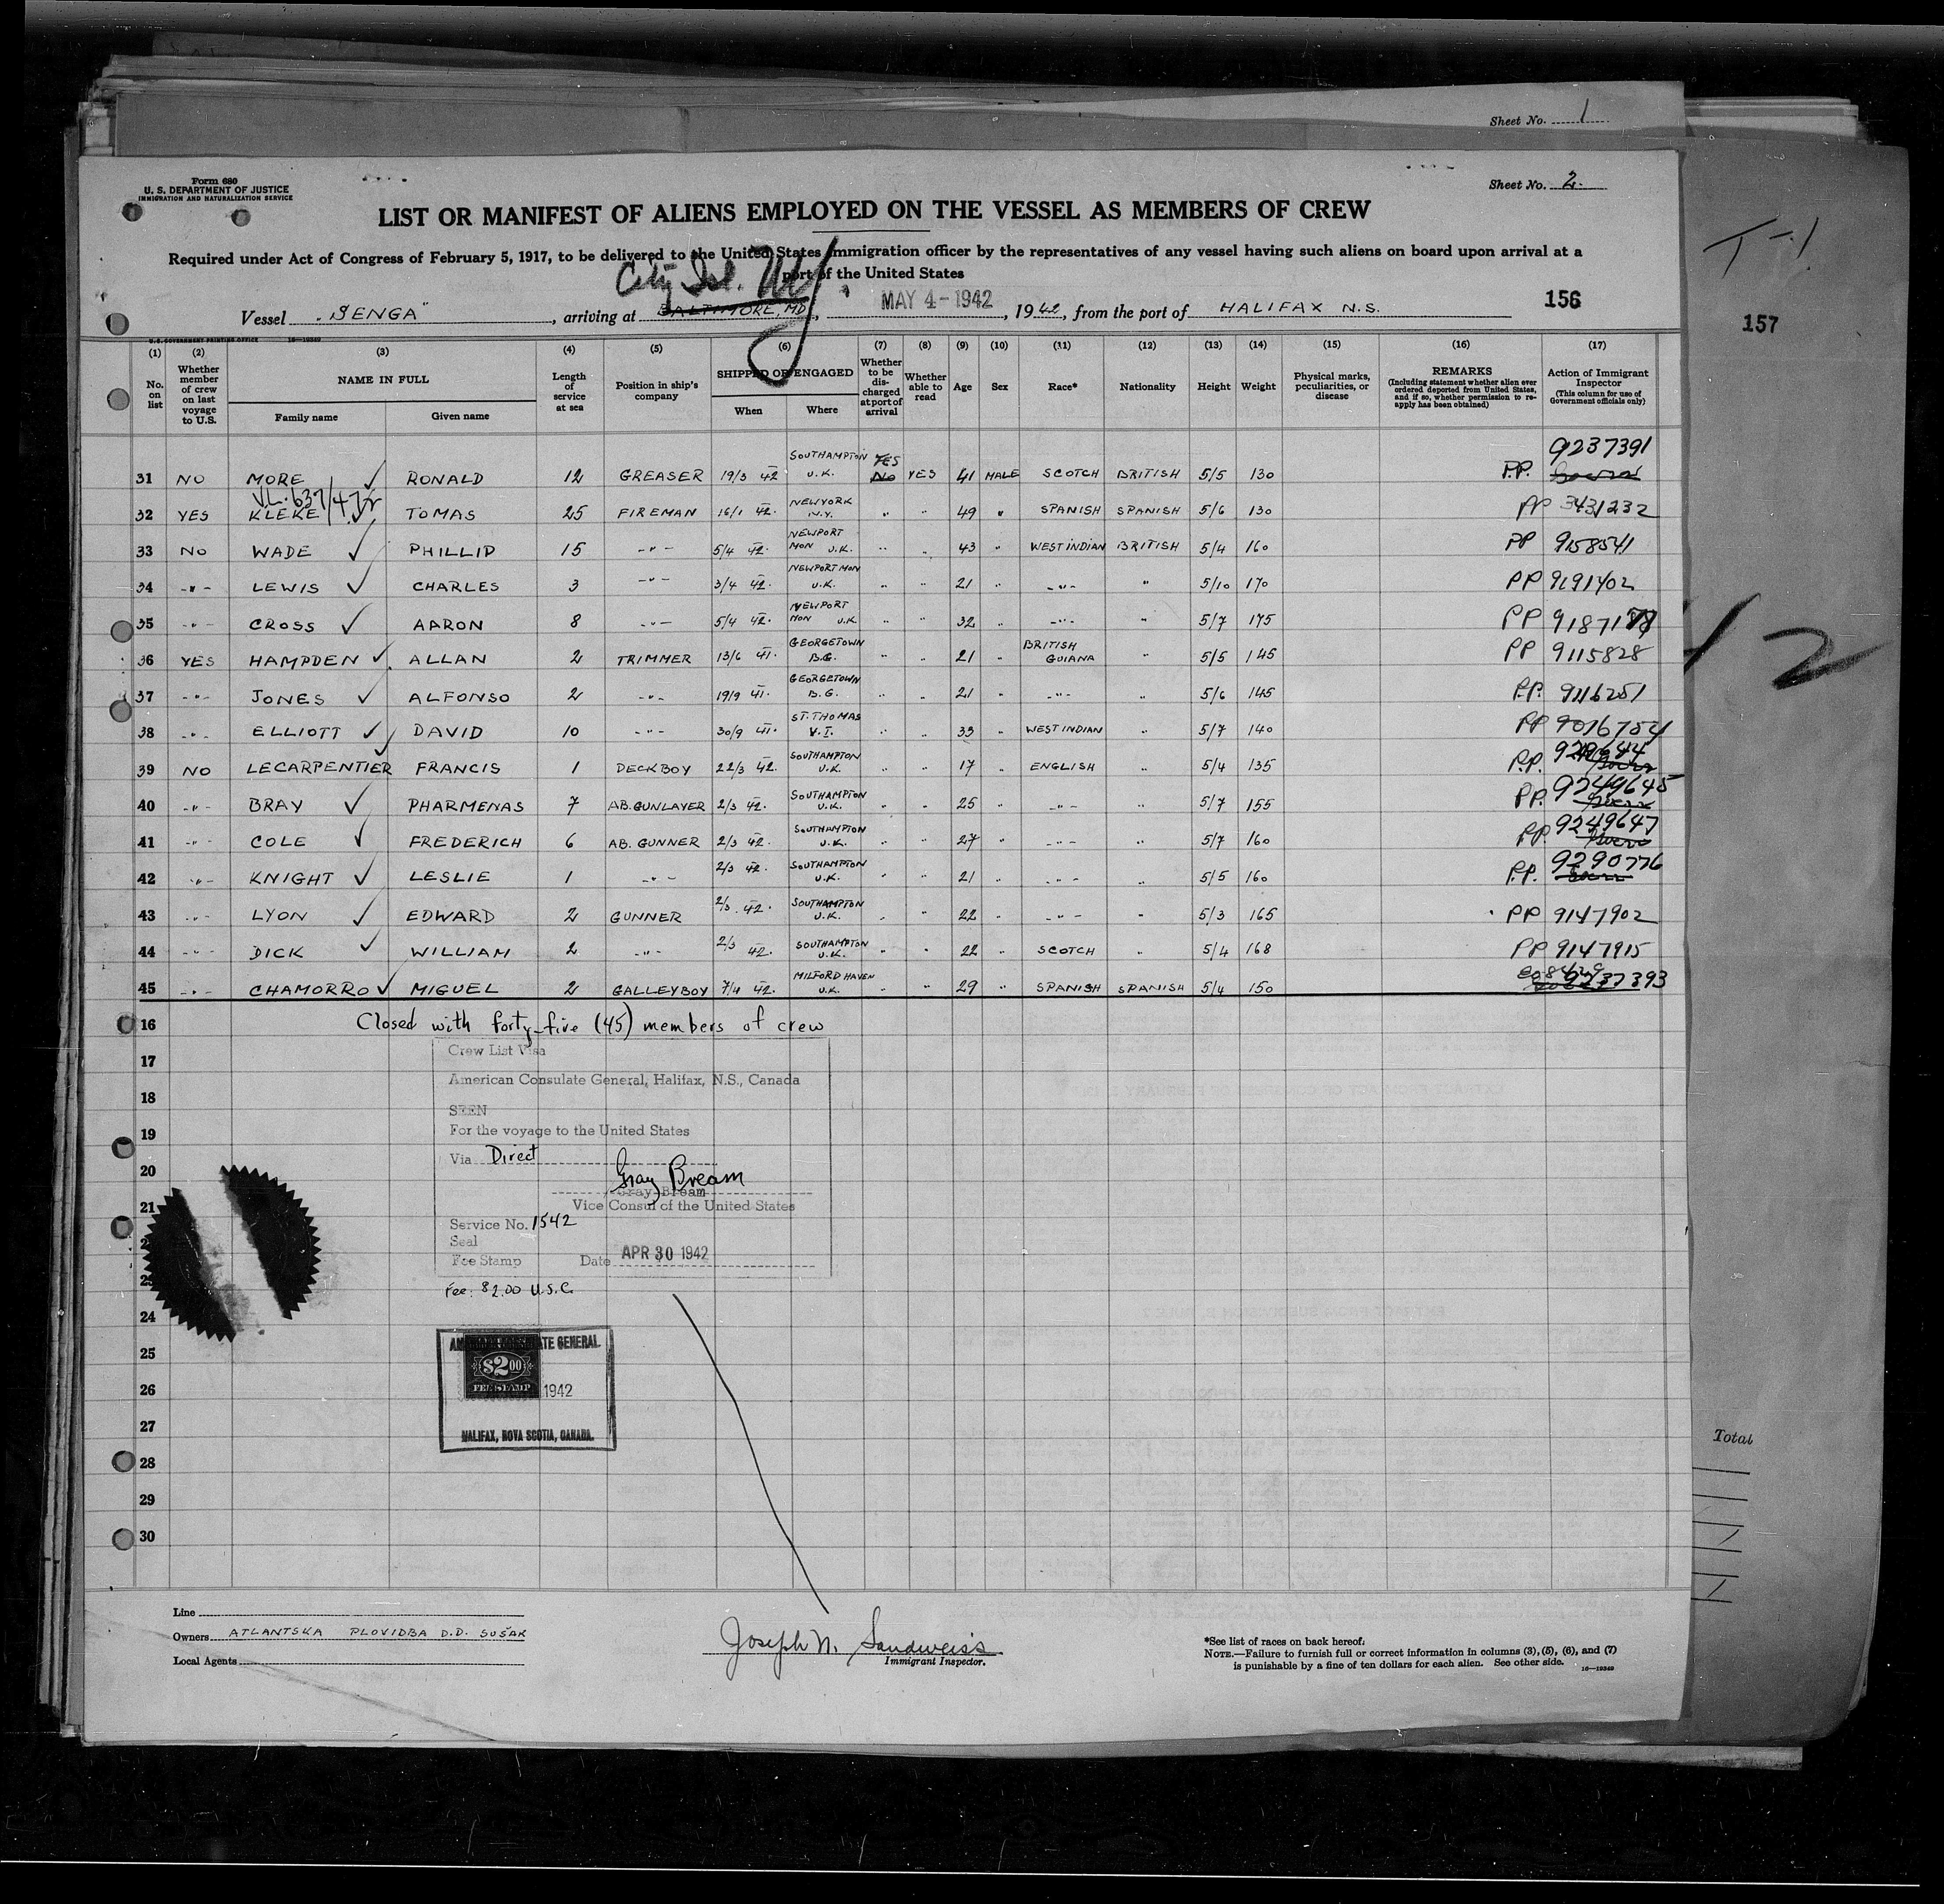 Sheet No. 1
Form 680
U. S. DEPARTMENT OF JUSTICE
IMMIGRATION AND NATURALIZATION SERVICE
Sheet No. 2.
LIST OR MANIFEST OF ALIENS EMPLOYED ON THE VESSEL AS MEMBERS OF CREW
Required under Act of Congress of February 5, 1917, to be delivered to the United States immigration officer by the representatives of any vessel having such aliens on board upon arrival at a
port of the United States
City Isl. NY
Vessel "SENGA", arriving at BALTIMORE, MD, MAY 4-1942, 1942, from the port of HALIFAX N.S.
156
T-1
157
U.S. GOVERNMENT PRINTING OFFICE 16—19349
(1) (2) (3) (4) (5) (6) (7) (8) (9) (10) (11) (12) (13) (14) (15) (16) (17)
No. on list
Whether member of crew on last voyage to U.S.
NAME IN FULL
Family name
Given name
Length of service at sea
Position in ship's company
SHIPPED OR ENGAGED
When
Where
Whether to be discharged at port of arrival
Whether able to read
Age
Sex
Race*
Nationality
Height
Weight
Physical marks, peculiarities, or disease
REMARKS
(Including statement whether alien ever ordered deported from United States, and if so, whether permission to reapply has been obtained)
Action of Immigrant Inspector
(This column for use of Government officials only)
31 NO MORE RONALD 12 GREASER 19/3 42 SOUTHAMPTON U.K. YES No YES 41 MALE SCOTCH BRITISH 5/5 130 P.P. 9237391
32 YES KLEKE TOMAS 25 FIREMAN 16/1 42. NEWYORK N.Y. " " 49 " SPANISH SPANISH 5/6 130 PP 3431232
33 NO WADE PHILLIP 15 -"- 5/4 42. NEWPORT MON U.K. " " 43 " WEST INDIAN BRITISH 5/4 160 PP 9158541
34 -"- LEWIS CHARLES 3 -"- 3/4 42. NEWPORT MON U.K. " " 21 " -"- " 5/10 170 PP 9191402
35 -"- CROSS AARON 8 -"- 5/4 42. NEWPORT MON U.K. " " 32 " -"- " 5/7 175 PP
36 YES HAMPDEN ALLAN 2 TRIMMER 13/6 41. GEORGETOWN B.G. " " 21 " BRITISH GUIANA " 5/5 145 PP 9115828
37 -"- JONES ALFONSO 2 -"- 19/9 41. GEORGETOWN B.G. " " 21 " -"- " 5/6 145 P.P. 9116251
38 -"- ELLIOTT DAVID 10 -"- 30/9 41. ST. THOMAS V.I. " " 33 " WEST INDIAN " 5/7 140 PP 9076754
39 NO LECARPENTIER FRANCIS 1 DECKBOY 22/3 42. SOUTHAMPTON U.K. " " 17 " ENGLISH " 5/4 135 P.P.
40 -"- BRAY PHARMENAS 7 AB. GUNLAYER 2/3 42. SOUTHAMPTON U.K. " " 25 " -"- " 5/7 155 PP. 9249645
41 -"- COLE FREDERICH 6 AB. GUNNER 2/3 42. SOUTHAMPTON U.K. " " 27 " -"- " 5/7 160 PP. 9249647
42 -"- KNIGHT LESLIE 1 -"- 2/3 42. SOUTHAMPTON U.K. " " 21 " -"- " 5/5 160 P.P. 9290776
43 -"- LYON EDWARD 2 GUNNER 2/3. 42. SOUTHAMPTON U.K. " " 22 " -"- " 5/3 165 PP 9147902
44 -"- DICK WILLIAM 2 -"- 2/3 42. SOUTHAMPTON U.K. " " 22 " SCOTCH " 5/4 168 PP 9147915
45 -"- CHAMORRO MIGUEL 2 GALLEYBOY 7/4 42. MILFORD HAVEN U.K. " " 29 " SPANISH SPANISH 5/4 150 9237393
12
16 Closed with forty-five (45) members of crew
17
18
19
20
21
24
25
26
27
28
29
30
Crew List Visa
American Consulate General, Halifax, N.S., Canada
SEEN
For the voyage to the United States
Via Direct
Gray Bream
Gray Bream
Vice Consul of the United States
Service No. 1542
Seal
Fee Stamp Date APR 30 1942
Fee: $2.00 U.S.C.
AMERICAN CONSULATE GENERAL
$2.00
FEE STAMP
1942
HALIFAX, NOVA SCOTIA, CANADA.
Total
Line
Owners ATLANTSKA PLOVIDBA D.D. SUŠAK
Local Agents
Joseph N. Sandweiss
Immigrant Inspector.
*See list of races on back hereof.
NOTE.—Failure to furnish full or correct information in columns (3), (5), (6), and (7)
is punishable by a fine of ten dollars for each alien. See other side. 16—19349